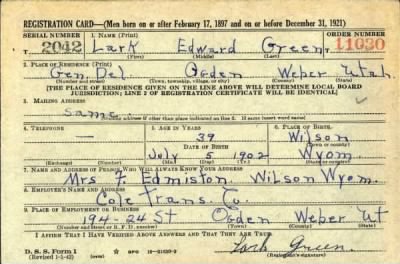 REGISTRATION CARD—(Men born on or after February 17, 1897 and on or before December 31, 1921)
SERIAL NUMBER 1. NAME (Print) ORDER NUMBER
T 2042 Lark Edward Green 11030
(First) (Middle) (Last)
2. PLACE OF RESIDENCE (Print)
Gen. Del. Ogden Weber Utah
(Number and street) (Town, township, village, or city) (County) (State)
[THE PLACE OF RESIDENCE GIVEN ON THE LINE ABOVE WILL DETERMINE LOCAL BOARD
JURISDICTION; LINE 2 OF REGISTRATION CERTIFICATE WILL BE IDENTICAL]
3. MAILING ADDRESS
Same
[Mailing address if other than place indicated on line 2. If same insert word same]
4. TELEPHONE 5. AGE IN YEARS 6. PLACE OF BIRTH
— 39 Wilson
DATE OF BIRTH (Town or county)
July 1902 Wyom.
(Exchange) (Number) (Mo.) (Day) (Yr.) (State or country)
7. NAME AND ADDRESS OF PERSON WHO WILL ALWAYS KNOW YOUR ADDRESS
Mrs F Edmiston Wilson Wyom.
8. EMPLOYER'S NAME AND ADDRESS
Cole Trans. Co.
9. PLACE OF EMPLOYMENT OR BUSINESS
194-24 St Ogden Weber Ut
(Number and street or R. F. D. number) (Town) (County) (State)
I AFFIRM THAT I HAVE VERIFIED ABOVE ANSWERS AND THAT THEY ARE TRUE.
D. S. S. Form 1
(Revised 1-1-42) GPO 16—21630-2
Lark Green
(Registrant's signature)